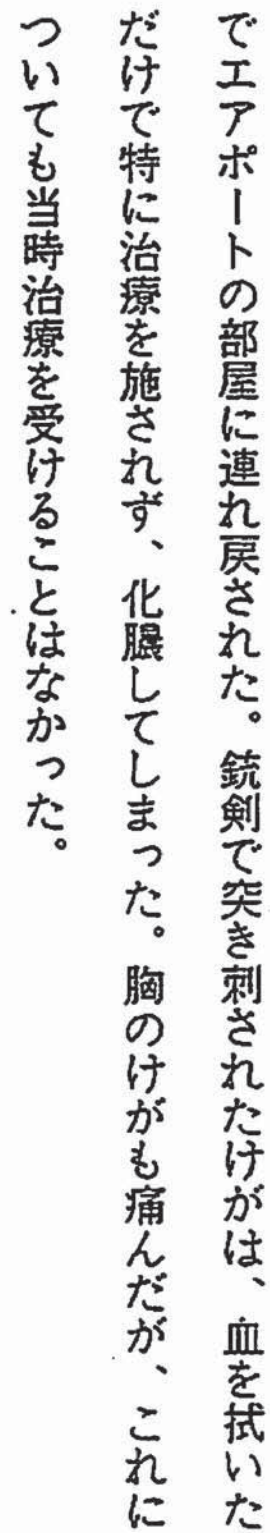 でエアポートの部屋に連れ戻された。銃剣で突き刺されたけがは、血を拭いた
だけで特に治療を施されず、化膿してしまった。胸のけがも痛んだが、これに
ついても当時治療を受けることはなかった。